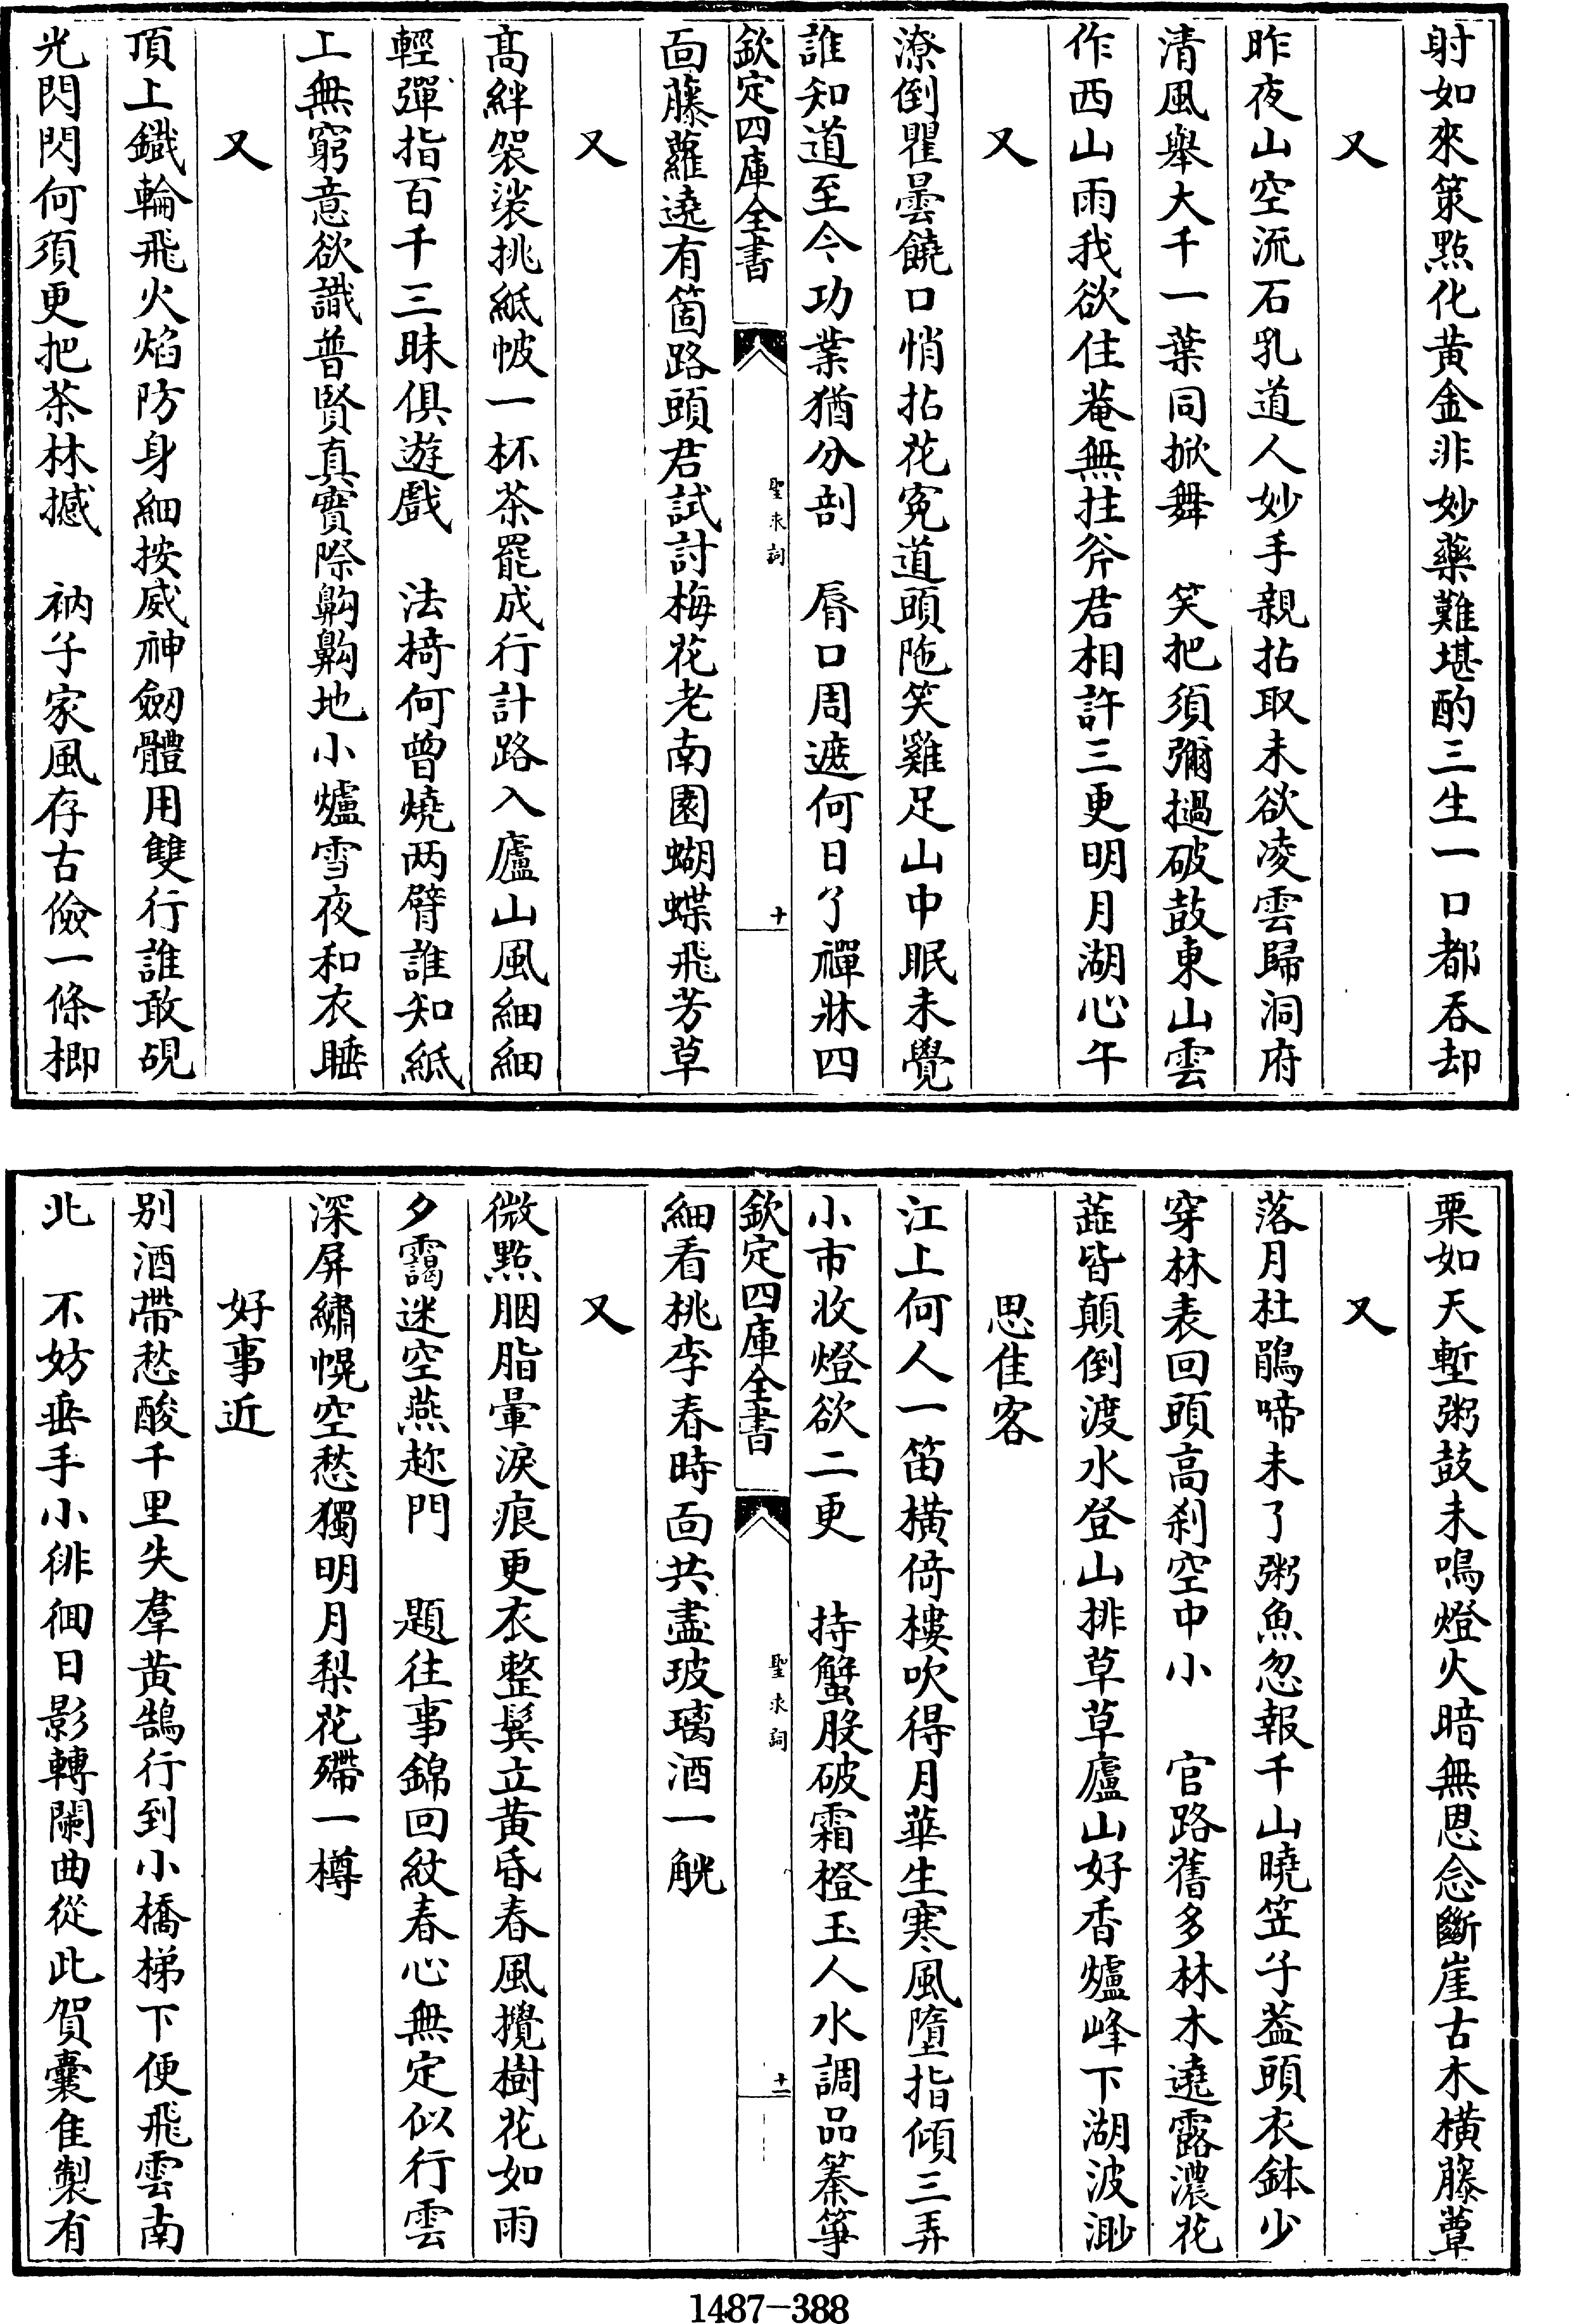 射如來策點化黃金非妙藥難堪酌三生一口都吞却
又
昨夜山空流石乳道人妙手親拈取未欲凌雲歸洞府
清風舉大千一葉同掀舞　笑把須彌撾破鼓東山雲
作西山雨我欲住菴無拄斧君相許三更明月湖心午
又
潦倒瞿曇饒口悄拈花寃道頭陁笑雞足山中眠未覺
誰知道至今功業猶分剖　脣口周遮何日了禪牀四
欽定四庫全書
聖求詞
十
面藤蘿遶有箇路頭君試討梅花老南園蝴蝶飛芳草
又
髙絆袈裟挑紙帔一杯茶罷成行計路入廬山風細細
輕彈指百千三昧俱遊戲　法椅何曾燒两臂誰知紙
上無窮意欲識普賢真實際齁齁地小爐雪夜和衣睡
又
頂上鐵輪飛火焰防身細按威神劒體用雙行誰敢覘
光閃閃何須更把茶林撼　衲子家風存古儉一條楖
栗如天塹粥鼓未鳴燈火暗無恩念斷崖古木橫藤蕈
又
落月杜鵑啼未了粥魚忽報千山曉笠子葢頭衣鉢少
穿林表回頭高刹空中小　官路舊多林木遶露濃花
蕋皆顛倒渡水登山排草草廬山好香爐峰下湖波渺
思佳客
江上何人一笛橫倚樓吹得月華生寒風墮指傾三弄
小市收燈欲二更　持蟹股破霜橙玉人水調品䈭箏
欽定四庫全書
聖求詞
十一
細看桃李春時面共盡玻璃酒一觥
又
微點胭脂暈淚痕更衣整鬂立黃昏春風攪樹花如雨
夕靄迷空燕趂門　題往事錦回紋春心無定似行雲
深屏繡幌空愁獨明月梨花殢一樽
好事近
别酒帶愁酸千里失羣黃鵠行到小橋梯下便飛雲南
北　不妨垂手小徘徊日影轉闌曲從此賀囊佳製有
1487-388